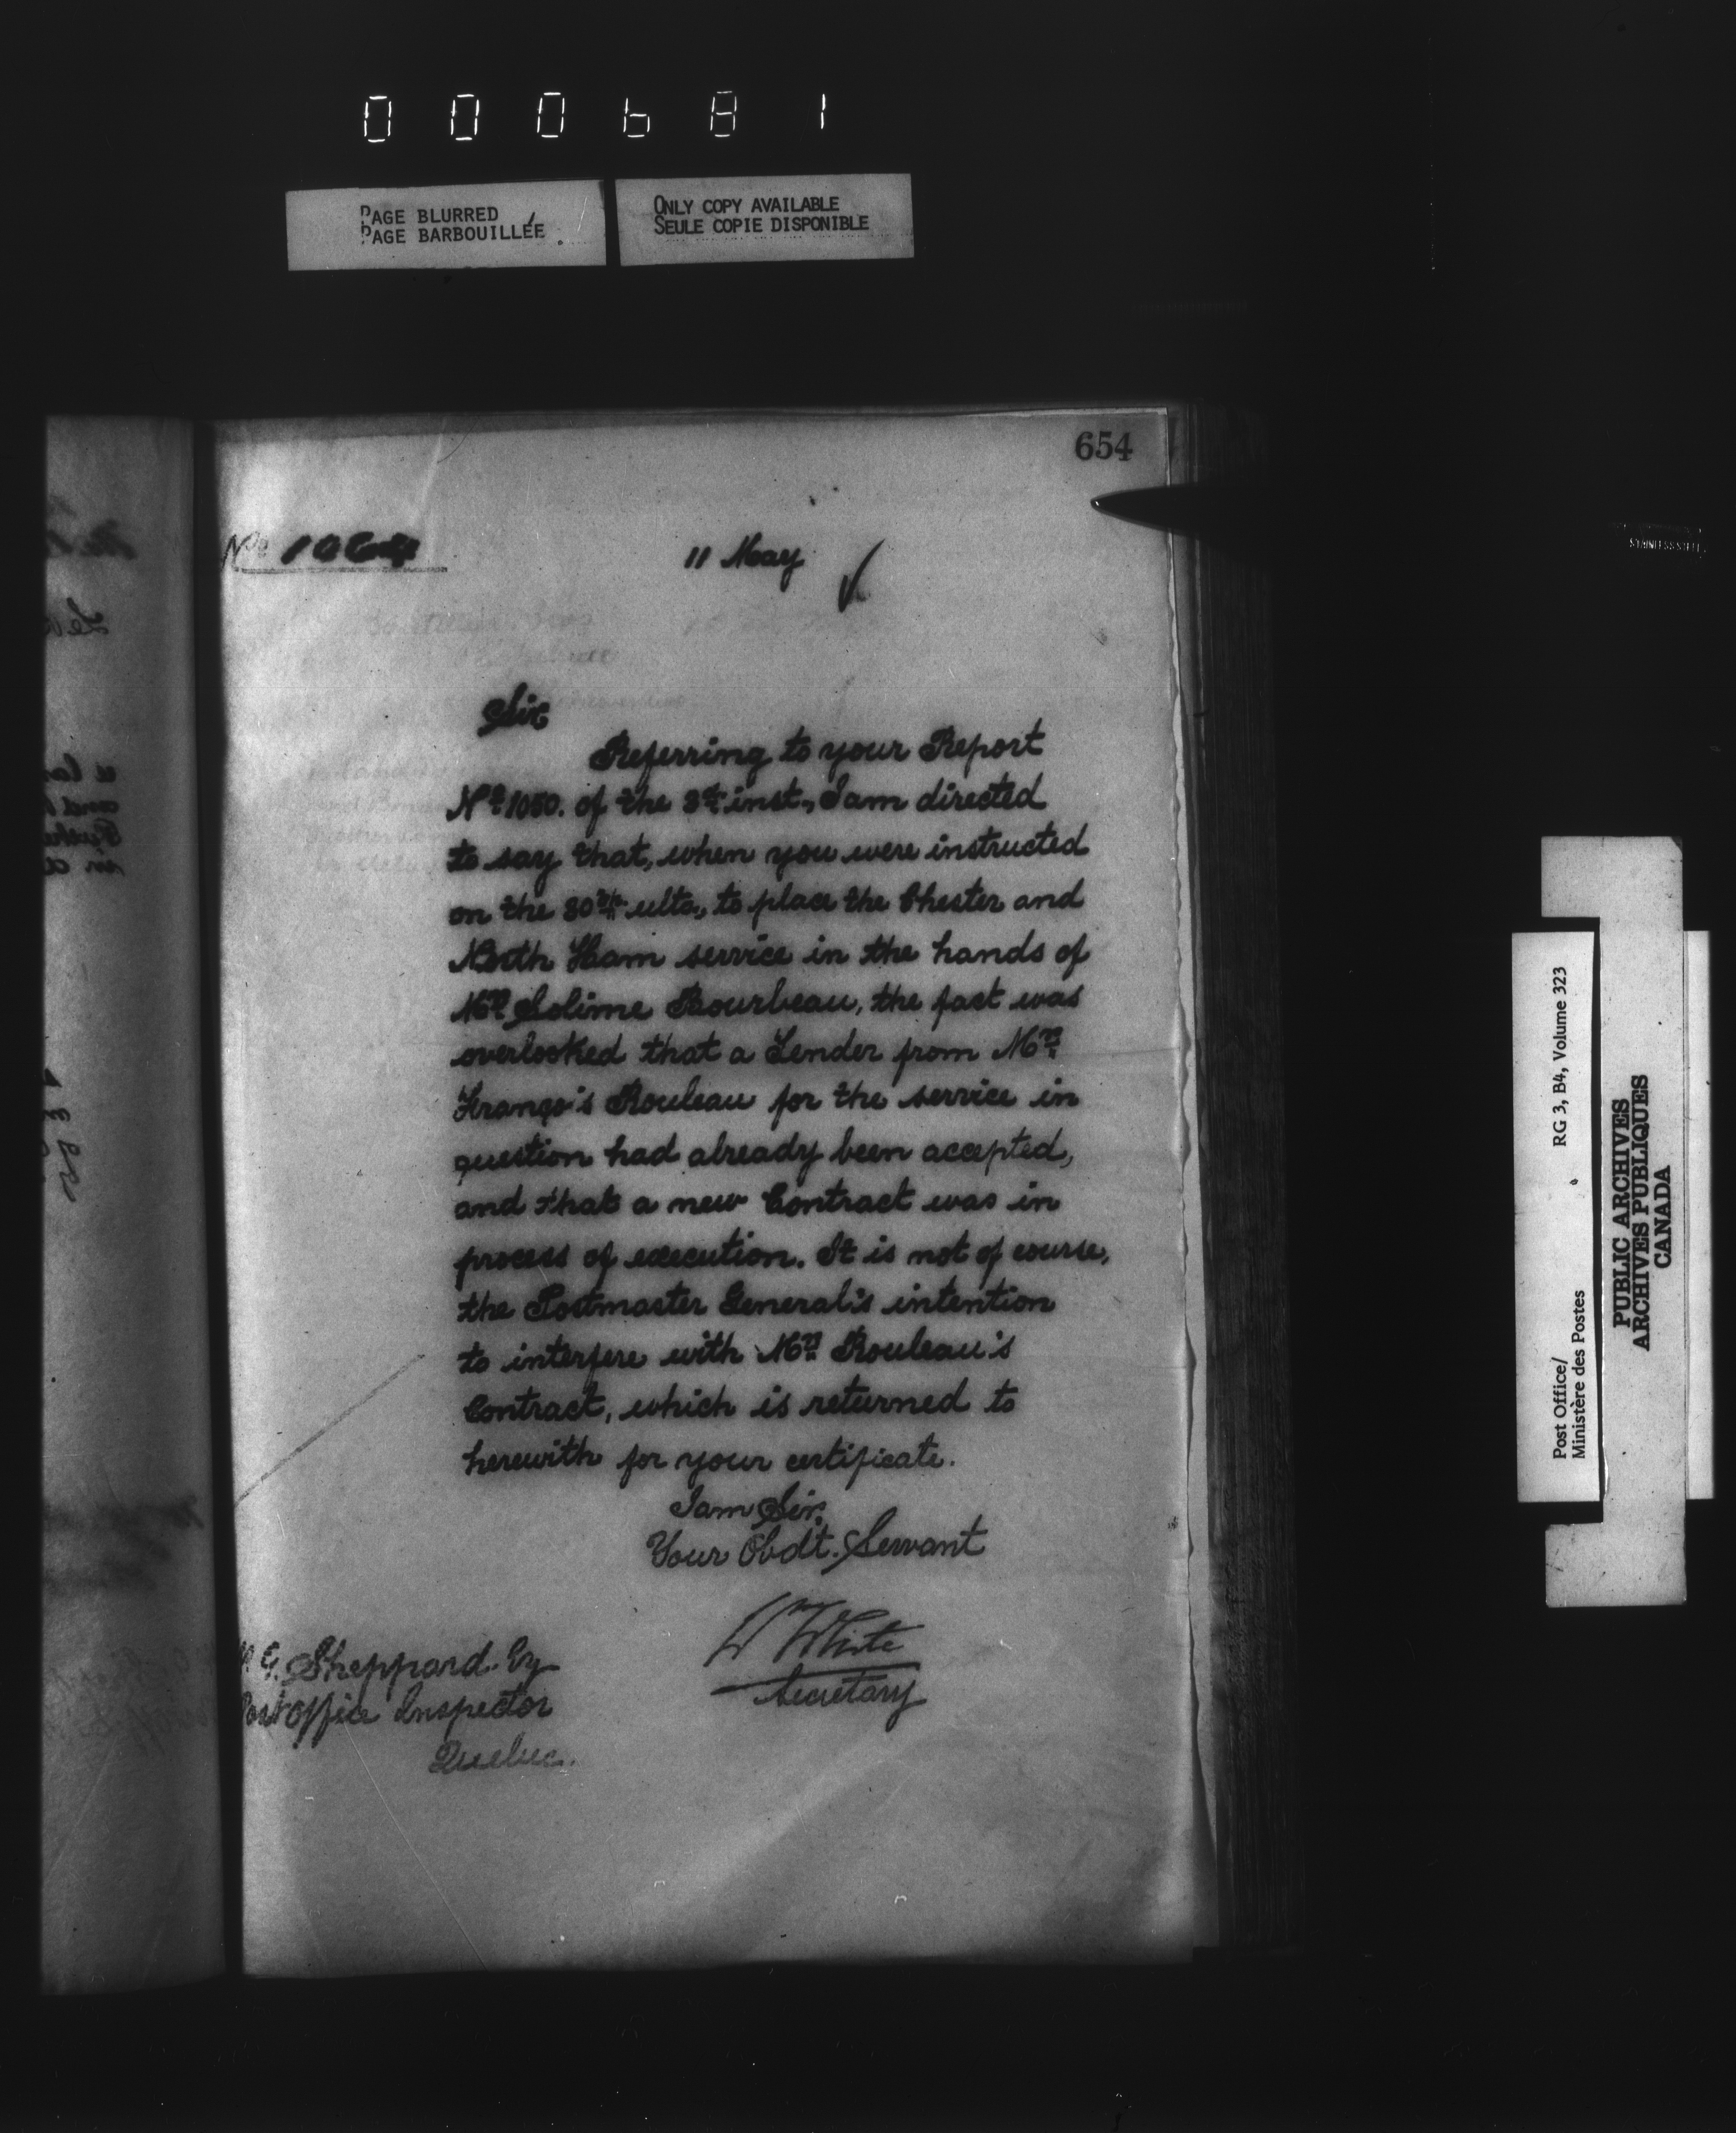 000681
PAGE BLURRED
PAGE BARBOUILLÉE
ONLY COPY AVAILABLE
SEULE COPIE DISPONIBLE
654
No
11 May
Sir
Referring to your Report
No 1050. of the 3rd inst., I am directed
to say that, when you were instructed
on the 30th ulto., to place the Chester and
North Ham service in the hands of
Mr Solime Bourbeau, the fact was
overlooked that a Tender from Mr
Franço's Rouleau for the service in
question had already been accepted,
and that a new Contract was in
process of execution. It is not of course,
the Postmaster General's intention
to interfere with Mr Rouleau's
Contract, which is returned to
herewith for your certificate.
I am Sir,
Your Obdt. Servant
W White
Secretary
G. Sheppard
Post Office Inspector
Quebec.
STAINLESS STEEL
Post Office/
Ministère des Postes
RG 3, B4, Volume 323
PUBLIC ARCHIVES
ARCHIVES PUBLIQUES
CANADA